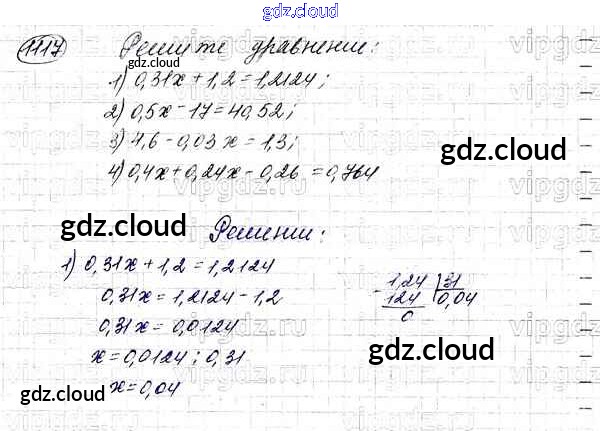 gdz.cloud
1117 Решите уравнения:
gdz.cloud
1) 0,31x + 1,2 = 1,2124;
2) 0,5x - 17 = 40,52;
3) 4,6 - 0,03x = 1,3;
gdz.cloud
4) 0,4x + 0,24x - 0,26 = 0,764
gdz.cloud
Решении:
1) 0,31x + 1,2 = 1,2124
0,31x = 1,2124 - 1,2
0,31x = 0,0124
x = 0,0124 : 0,31
x = 0,04
- 1,24 31
124 0,04
0
gdz.cloud
gdz.cloud
vipgdz